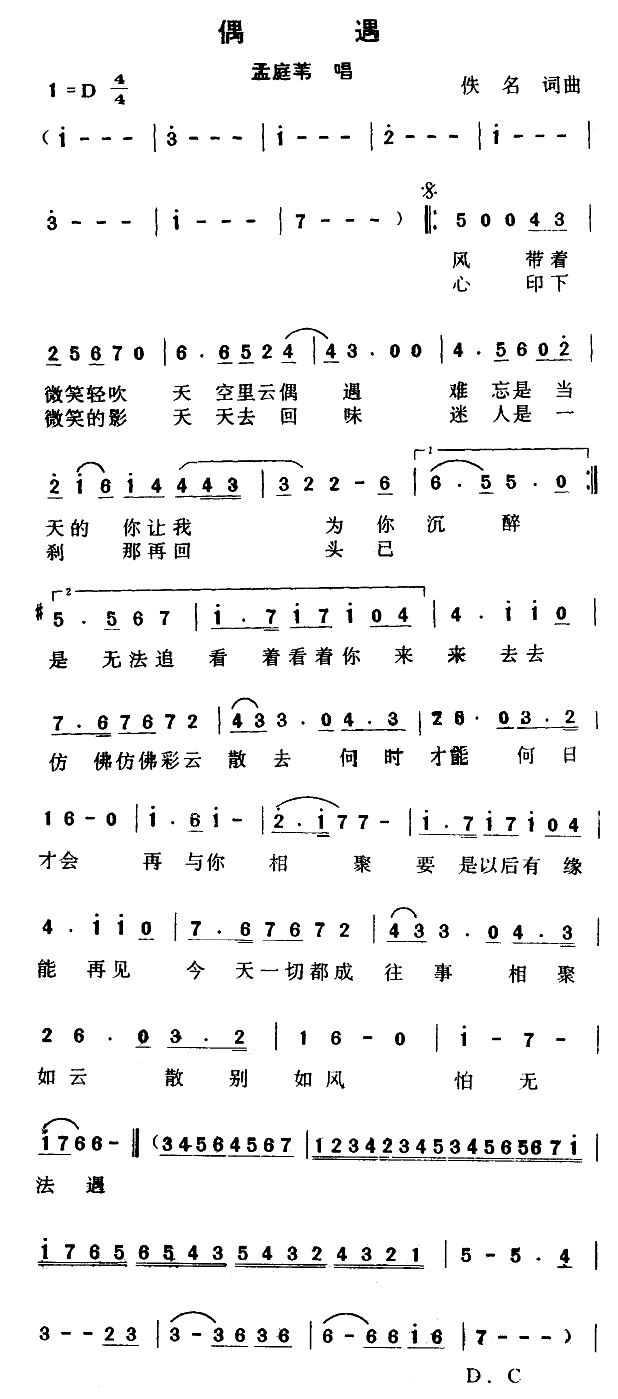 偶 遇
孟庭苇 唱
1=D 4/4 佚 名 词曲
(i - - - | 3 - - - | i - - - | 2 - - - | i - - - |
3 - - - | i - - - | 7 - - - ) ‖: 5 0 0 4 3 |
风 带着
心 印下
2 5 6 7 0 | 6 . 6 5 2 4 | 4 3 . 0 0 | 4 . 5 6 0 2 |
微笑轻吹 天 空里云偶 遇 难 忘是当
微笑的影 天 天去 回 味 迷 人是一
2 i 6 i 4 4 4 3 | 3 2 2 - 6 | 6 . 5 5 . 0 :‖
天的 你让我 为 你 沉 醉
刹 那再回 头 已
#5 . 5 6 7 | i . 7 i 7 i 0 4 | 4 . i i 0 |
是 无法追 看 着看着你 来 来 去去
7 . 6 7 6 7 2 | 4 3 3 . 0 4 . 3 | 2 6 . 0 3 . 2 |
仿 佛仿佛彩云 散 去 何 时 才能 何 日
1 6 - 0 | i . 6 i - | 2 . i 7 7 - | i . 7 i 7 i 0 4 |
才会 再 与你 相 聚 要 是以后有 缘
4 . i i 0 | 7 . 6 7 6 7 2 | 4 3 3 . 0 4 . 3 |
能 再见 今 天一切都成 往 事 相 聚
2 6 . 0 3 . 2 | 1 6 - 0 | i - 7 - |
如云 散 别 如风 怕 无
i 7 6 6 - ‖ (3 4 5 6 4 5 6 7 | 1 2 3 4 2 3 4 5 3 4 5 6 5 6 7 i |
法 遇
i 7 6 5 6 5 4 3 5 4 3 2 4 3 2 1 | 5 - 5 . 4 |
3 - - 2 3 | 3 - 3 6 3 6 | 6 - 6 6 i 6 | 7 - - - ) |
D . C